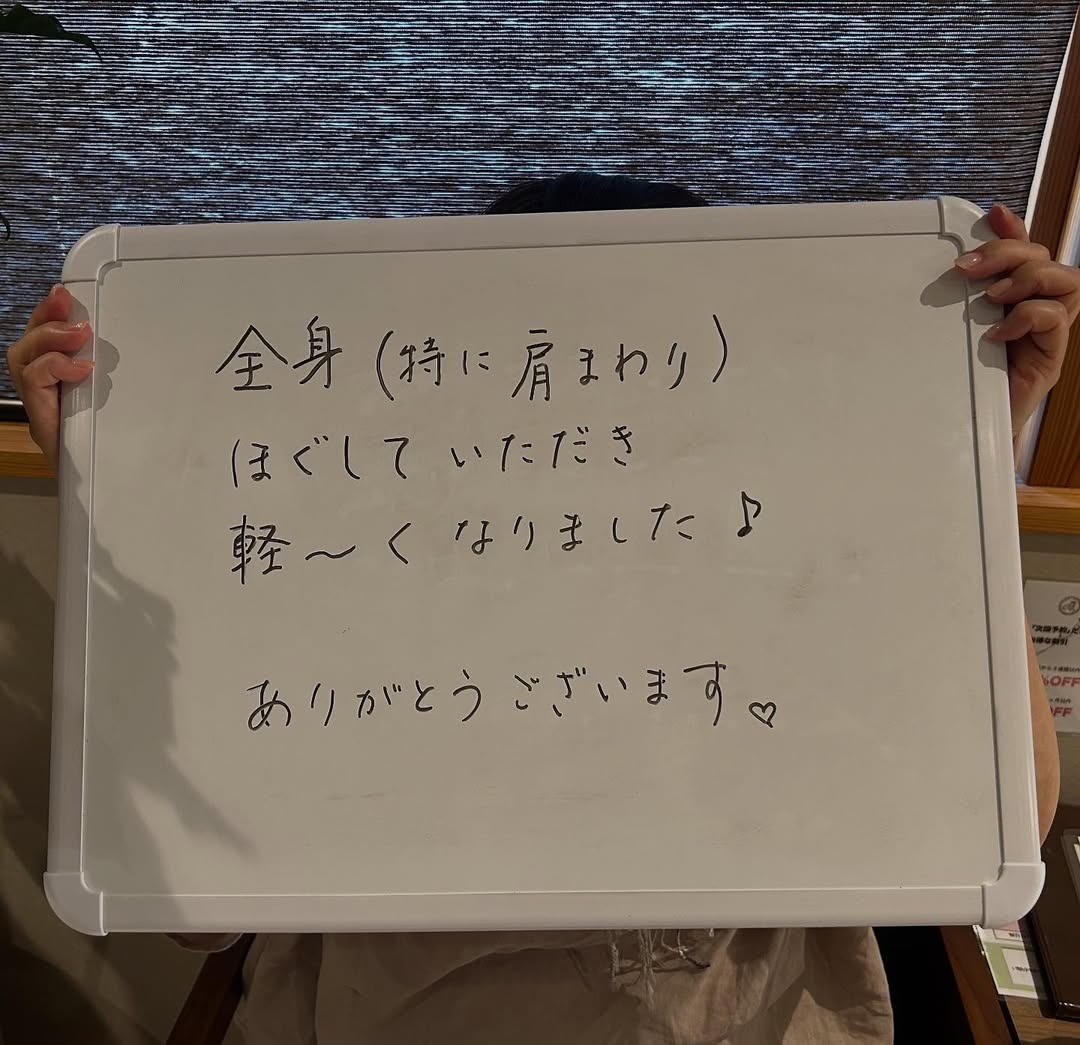 全身（特に肩まわり）
ほぐしていただき
軽〜くなりました♪
ありがとうございます♡
%OFF
OFF